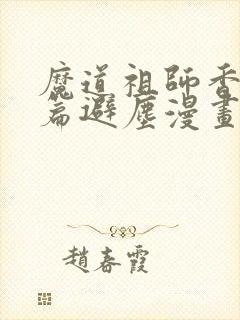 魔道祖師香
篇避塵漫畫
趙春霞